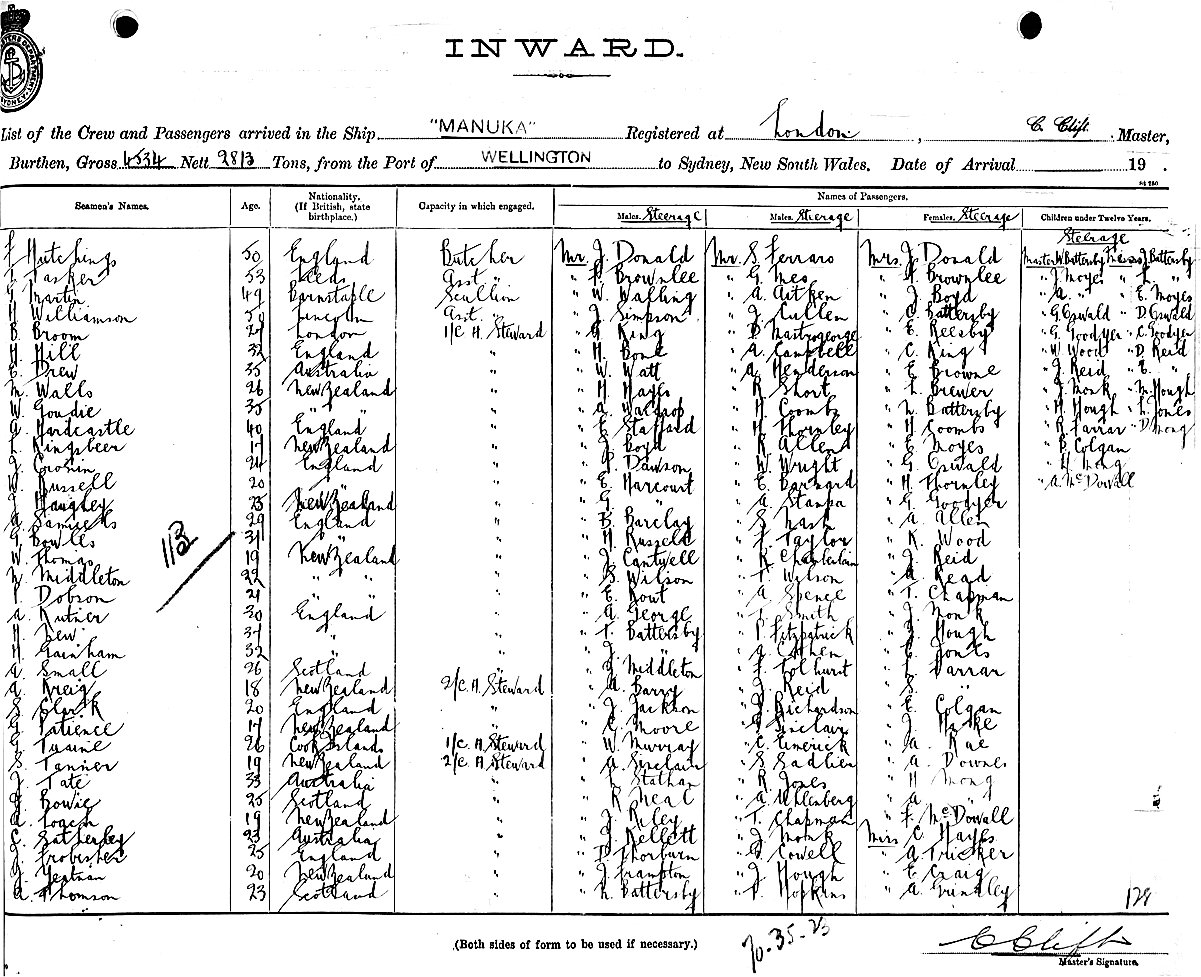 INWARD.
List of the Crew and Passengers arrived in the Ship "MANUKA" Registered at London, C. Clift. Master,
Burthen, Gross 4534 Nett 2813 Tons, from the Port of WELLINGTON to Sydney, New South Wales. Date of Arrival 19 .
Seamen's Names. Age. Nationality. (If British, state birthplace.) Capacity in which engaged. Names of Passengers.
Males. Steerage Males. Steerage Females. Steerage Children under Twelve Years.
Steerage
Hutchings 50 England Butcher Mr. J. Donald Mr. S. Ferraro Mrs. J. Donald Master W Battersby Misses J Battersby
Tasker 53 Leeds Asst " " Brownlee " G. Meo " Brownlee " J Moyes " "
Martin 49 Barnstable Scullion " W. Watling " A. Aitken " J. Boyd " A. " " E. Moyes
H Williamson Lincoln Asst. " " J. Simpson " J. Cullen " C Battersby " G Oswald " D. Oswald
B. Broom 24 London 1/C A. Steward " G. King " D Mastrogeorge " E. Reesby " G Goodyer " C. Goodyer
H. Hill 32 England " " H. Bone " A. Campbell " C. King " W Wood " D. Reid
E. Drew 35 Australia " " W. Watt " A. Henderson " E Browne " J. Reid " E. "
M. Walls 26 New Zealand " " H Hayes " R Short " L Brewer " J. Monk " M. Hough
W. Goudie 35 " " " " A. Waldrop " H. Coombs " N Battersby " H. Hough " L. Jones
G Hardcastle 40 England " " E. Stafford " H. Thornley " H Coombs " R Farrar " D Mong
L. Kingsbeer 17 New Zealand " " J. Boyd " R Allen " E Moyes " B Colgan
J. Cronin 24 England " " P. Dawson " W. Wright " G Oswald " H Mong
W. Russell 20 " " E. Harcourt " E. Barnard " H. Thornley " A McDowall
J Haughey 23 New Zealand " " G. " " A. Stanpa " G. Goodyer
A Samuels 29 England " " B. Barclay " S. Nash " A. Allen
G. Bowles 31 " " " H Russell " F Taylor " K. Wood
113
W. Thomas 19 New Zealand " " J. Cantwell " R Chamberlain " J. Reid
W. Middleton 22 " " " " S. Wilson " T. Wilson " A. Read
P. Dobson 21 " " " " E Rout " A Spence " T. Chapman
A. Rutner 30 England " " A. George " T Smith " J. Monk
H. New 31 " " " T. Battersby " P. Fitzpatrick " J. Hough
H. Gainham 32 " " " J. " " J. Cohen " E. Jones
A. Small 26 Scotland " " J. Middleton " F Tolhurst " L Farrar
A. Kreig 18 New Zealand 2/C. A. Steward " A. Barry " J. Reid " S. "
S. Clark 20 England " " J. Jackson " J. Richardson " E. Colgan
G. Patience 17 New Zealand " " C. Moore " P. Sinclair " J.
G. Tuaine 26 Cook Islands 1/C. A. Steward " W. Murray " E. Limerick " A. Rae
S. Tanner 19 New Zealand 2/C. A. Steward " A. Sinclair " S Sadlier " A. Downes
J. Tate 33 Australia " " L. Stathan " R. Jones " H Mong
J. Bowie 25 Scotland " " R Neal " A Uhlenberg " A "
A. Loach 19 New Zealand " " J. Riley " T. Chapman " F. McDowall
C. Satherley 23 Australia " " J. Kellett " J. Monk Mrs C. Hayes
J. Frobisher 25 England " " D. Thorburn " G. Cowell " A Tricker
J. Yeatman 20 New Zealand " " J. Frampton " J. Hough " E. Craig
A. Thomson 23 Scotland " " N. Battersby " P. Hopkins " A. Grindley
129
(Both sides of form to be used if necessary.)
70-35-23
C Clift
Master's Signature.